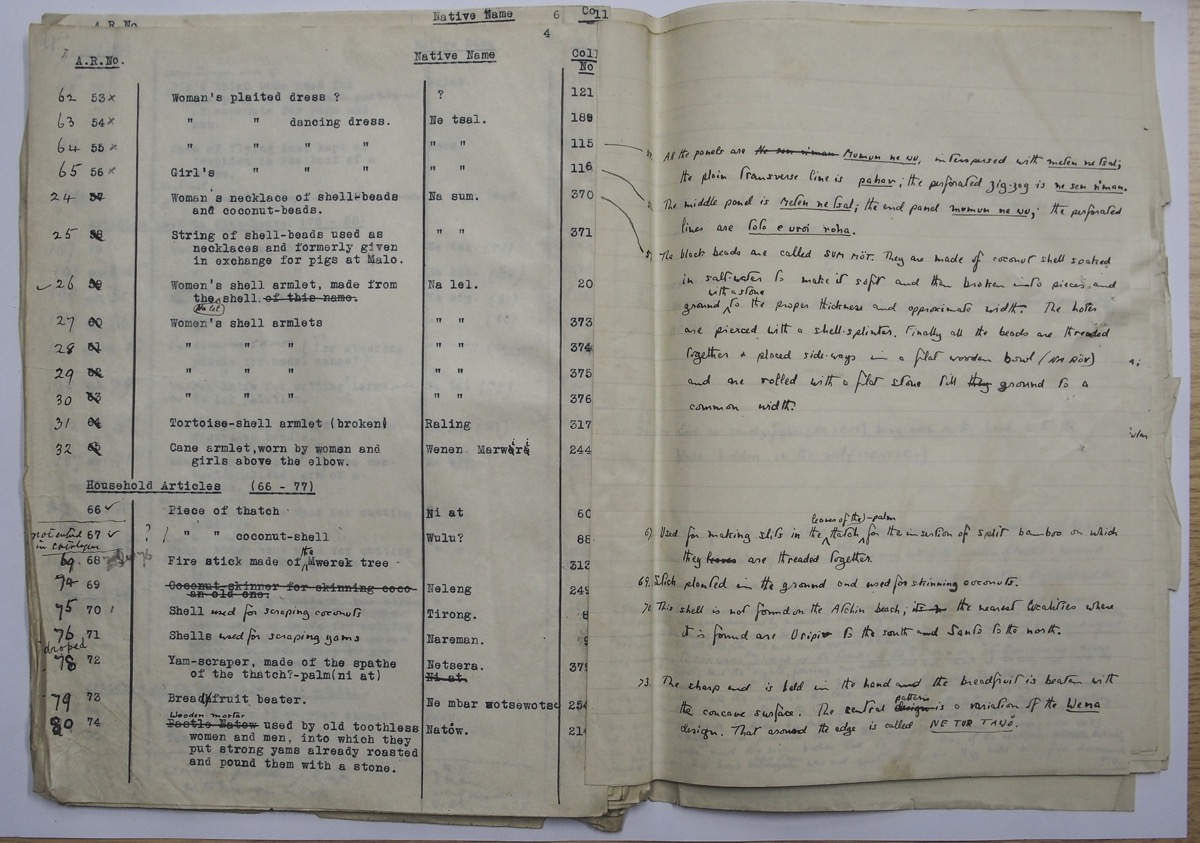 A.R.No. Native Name 6 Coll
4
A.R.No. Native Name Coll
No
62 53 x Woman's plaited dress ? ? 121
63 54 x " " dancing dress. Ne tsal. 188
64 55 x " " " " " " 115
65 56 x Girl's " " " " " 116
24 57 Woman's necklace of shell-beads Na sum. 370
and coconut-beads.
25 58 String of shell-beads used as " " 371
necklaces and formerly given
in exchange for pigs at Malo.
26 59 Women's shell armlet, made from Na lel. 20
the shell of this name.
(Na lel)
27 60 Women's shell armlets " " 373
28 61 " " " " " 374
29 62 " " " " " 375
30 63 " " " " " 376
31 64 Tortoise-shell armlet (broken) Raling 317
32 65 Cane armlet,worn by women and Wenen 244
girls above the elbow.
Household Articles (66 - 77)
66 ✓ Piece of thatch Ni at 60
not entered 67 ✓ ? " " coconut-shell Wulu? 88
in catalogue
the
69. 68 Fire stick made of Mwerek tree 312
74 69 Coconut-skinner for skinning coco- Neleng 249
an old one.
75 70 Shell used for scraping coconuts Tirong. 8
76 71 Shells used for scraping yams Nareman. 9
droped
78 72 Yam-scraper, made of the spathe Netsera. 379
of the thatch?-palm(ni at) Ni at.
79 73 Bread fruit beater. Ne mbar wotsewotsc 254
Wooden mortar
80 74 Pestle Natow used by old toothless Natów. 214
women and men, into which they
put strong yams already roasted
and pound them with a stone.
All the panels are Ne sen niman Mumun ne wu, interspersed with meten ne tsal;
the plain transverse line is pahar; the perforated zig-zag is ne sen niman.
The middle panel is Meten ne tsal; the end panel mumun ne wu; the perforated
lines are Tolo e uroi roha.
The black beads are called SUM MÖT. They are made of coconut shell soaked
in salt-water to make it soft and then broken into pieces and
with a stone
ground to the proper thickness and approximate width. The holes
are pierced with a shell-splinter. Finally all the beads are threaded
together & placed side-ways in a flat wooden bowl
and are rolled with a flat stone till they ground to a
common width.
leaves of the -palm
67. Used for making slits in the thatch for the insertion of split bamboo on which
they leaves are threaded together.
69. Stick planted in the ground and used for skinning coconuts.
70. This shell is not found on the Atchin beach; the nearest localities where
it is found are Uripiv to the south and Santo to the north.
73. The sharp end is held in the hand and the breadfruit is beaten with
pattern
the concave surface. The central design is a variation of the Wema
design. That around the edge is called NE TUR TAWÖ.